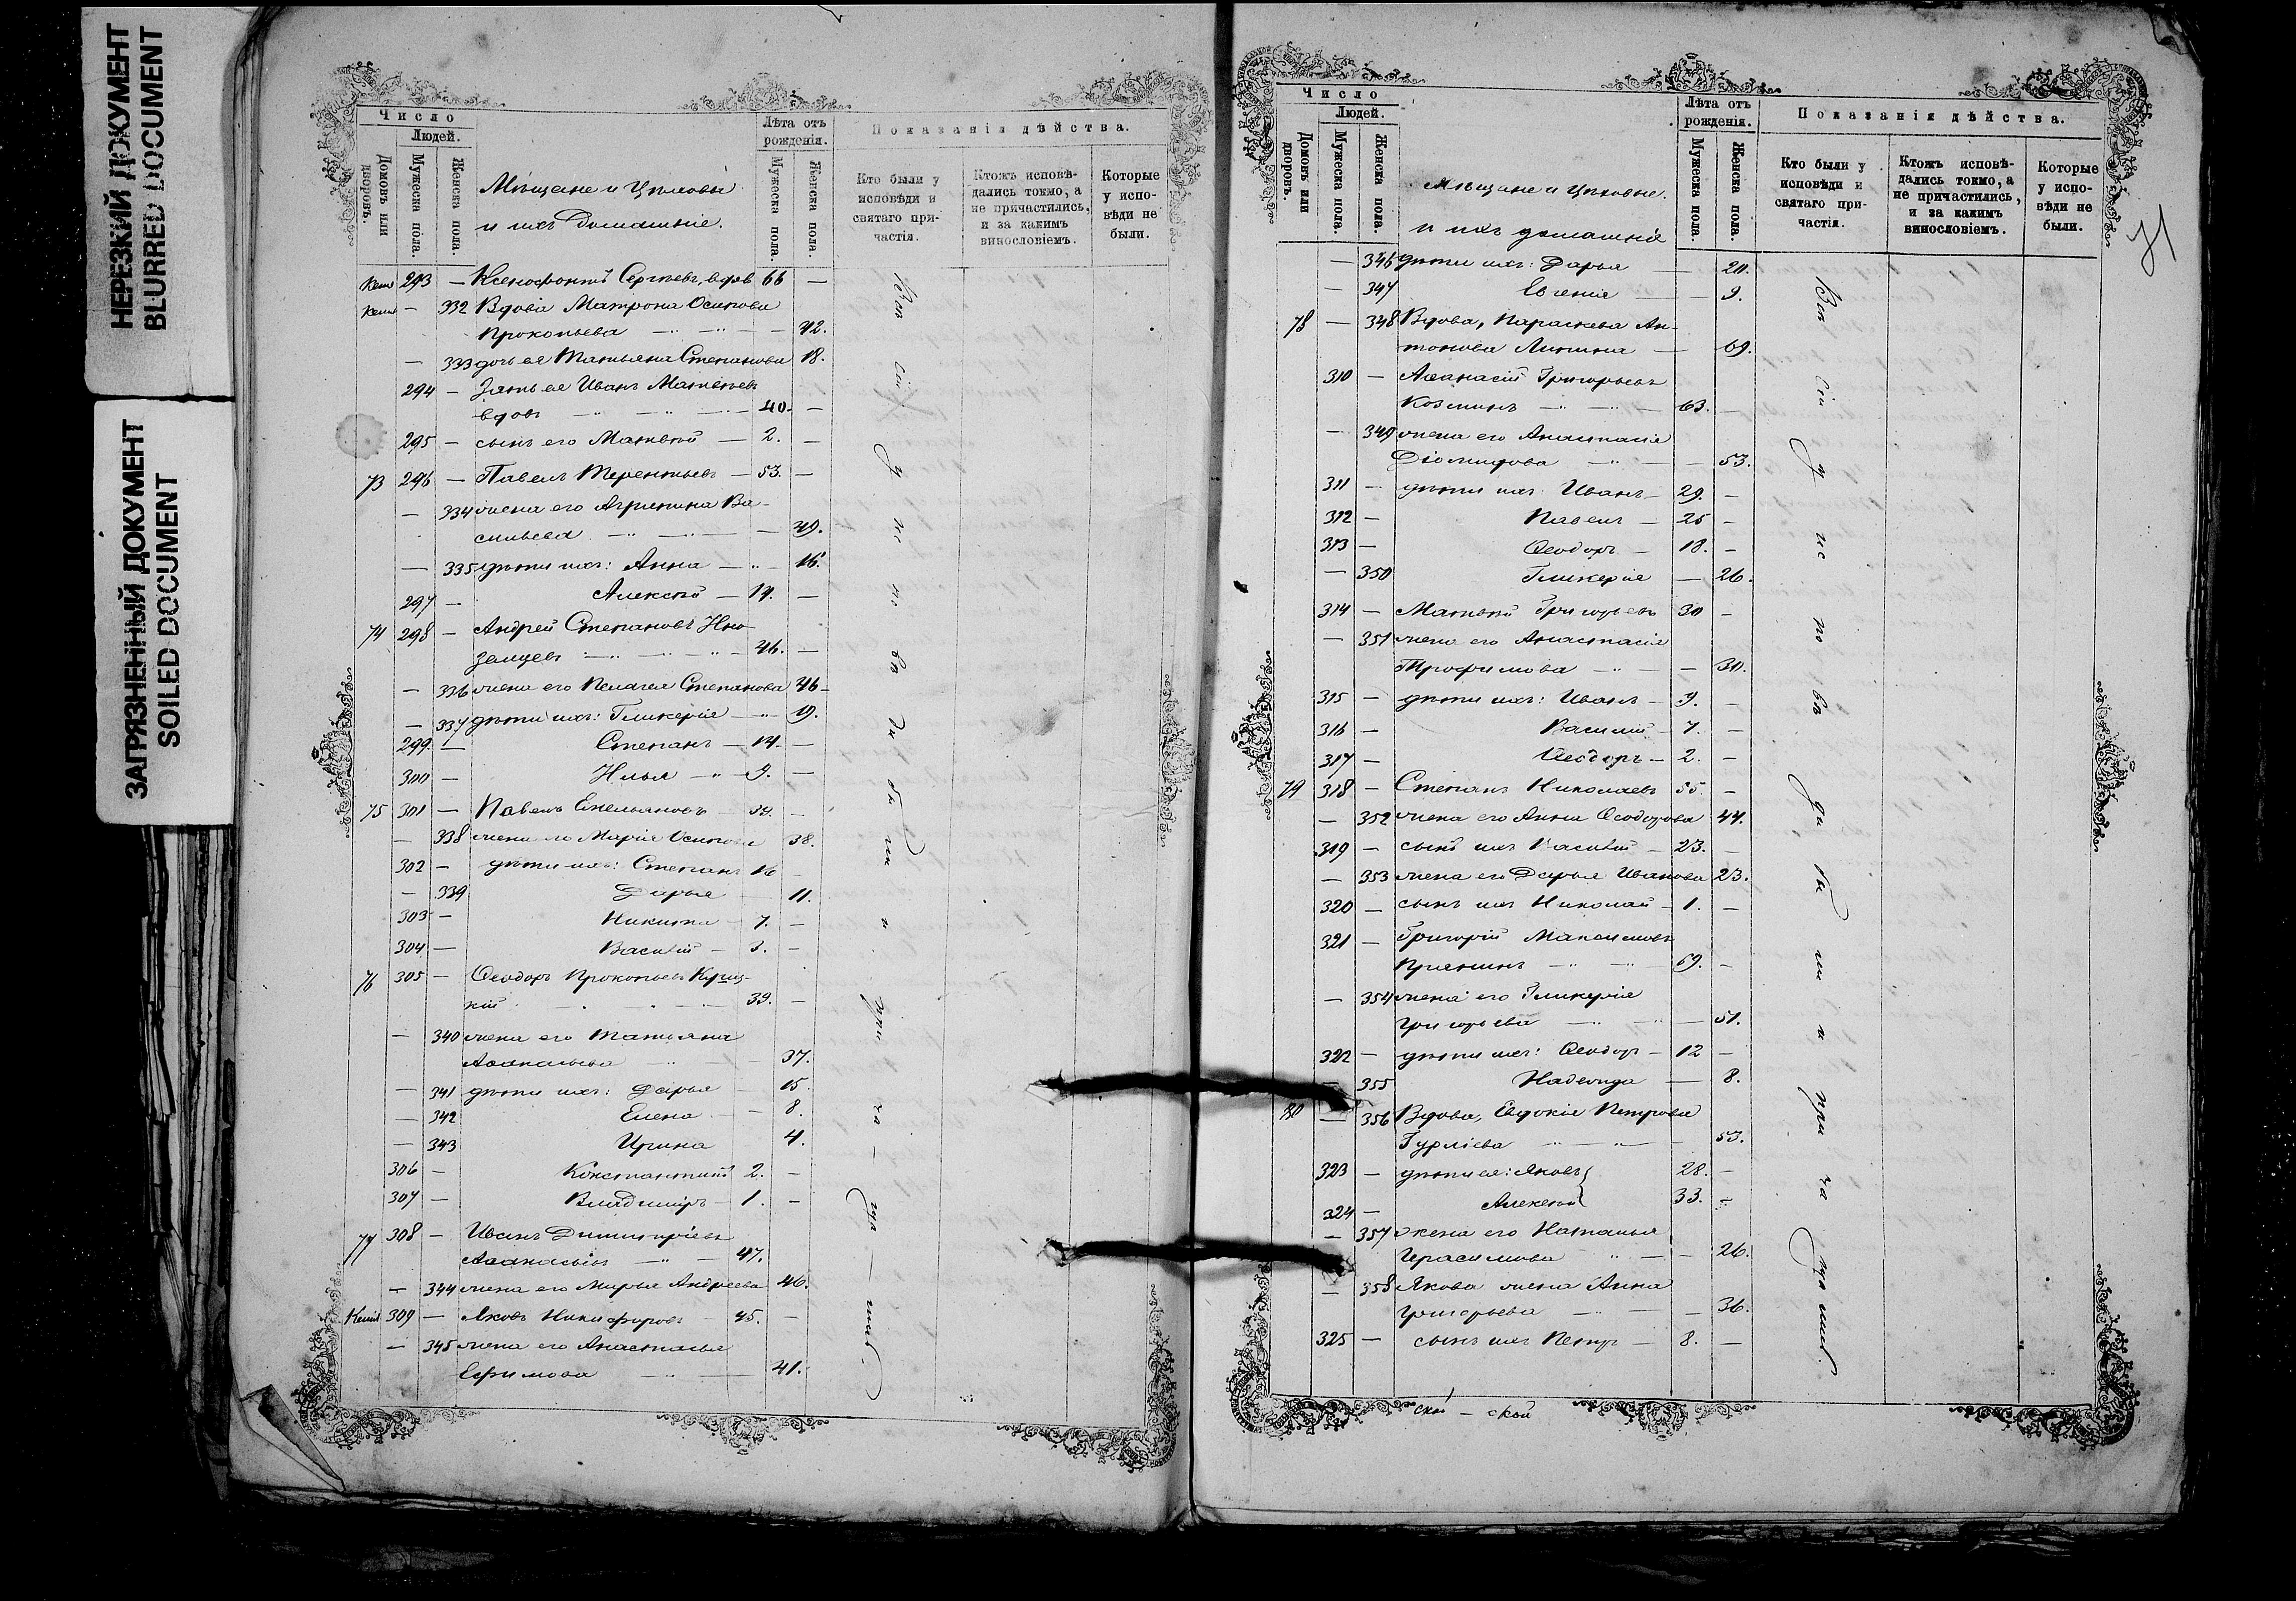 НЕРЕЗКИЙ ДОКУМЕНТ
BLURRED DOCUMENT
ЗАГРЯЗНЕННЫЙ ДОКУМЕНТ
SOILED DOCUMENT
Число
Людей.
Домовъ или дворовъ.
Мужеска пола.
Женска пола.
Мѣщане и Цѣховые
и ихъ домашніе.
Лѣта отъ рожденія.
Мужеска пола.
Женска пола.
Показанія дѣйства.
Кто были у исповѣди и святаго причастія.
Ктожъ исповѣдались токмо, а не причастились, и за какимъ винословіемъ.
Которые у исповѣди не были.
293 — Ксенофонтъ Сергѣевъ, вдов 66 —
— 332 Вдова Матрона Осипова
Прокопьева — 42.
— 333 дочь ея Татьяна Степанова 18.
294 — Зять ея Иванъ Матвѣевъ
вдовъ — 40. —
295 — сынъ его Матвѣй — 2. —
73 296 — Павелъ Терентьевъ — 53. —
— 334 жена его Агрипина Ва-
сильева — 49.
— 335 дѣти ихъ: Анна — 16.
297 — Алексѣй — 14. —
74 298 — Андрей Степановъ Ино-
земцевъ — 46. —
— 336 жена его Пелагея Степанова 46 —
— 337 дѣти ихъ: Гликерія — 19.
299. — Степанъ — 14. —
300 — Илья — 9. —
75 301 — Павелъ Емельяновъ 39. —
— 338 жена его Марія Осипова 38.
302 — дѣти ихъ: Степанъ 16 —
— 339 Дарья 11.
303 — Никита 7. —
304 — Василій — 3. —
76 305 — Ѳеодоръ Прокопьевъ Криц-
кій 39. —
— 340 жена его Татьяна
Аѳанасьева 37.
— 341 дѣти ихъ: Дарья — 15.
— 342 Елена — 8.
— 343 Ирина 4.
306 — Константинъ 2. —
307 — Владиміръ — 1. —
77 308 — Иванъ Димитріевъ
Аѳанасьевъ — 47.
— 344 жена его Марья Андреева 46.
309 — Яковъ Никифоровъ 45. —
— 345 жена его Анастасья
Ефимова — 41.
Всѣ сіи у исповѣди были и при ча — стл — ись.
31
Число
Людей.
Домовъ или дворовъ.
Мужеска пола.
Женска пола.
Мѣщане и Цѣховые.
и ихъ домашніе
Лѣта отъ рожденія.
Мужеска пола.
Женска пола.
Показанія дѣйства.
Кто были у исповѣди и святаго причастія.
Ктожъ исповѣдались токмо, а не причастились, и за какимъ винословіемъ.
Которые у исповѣди не были.
— 346 дѣти ихъ: Дарья — 20.
— 347 Евгенія — 9.
78 — 348 Вдова, Параскева Ан-
тонова Липина — 69.
310 — Аѳанасій Григорьевъ
Козминъ — 63. —
— 349 жена его Анастасія
Діомидова — 53.
311 — дѣти ихъ: Иванъ — 29. —
312 — Павелъ — 25 —
313 — Ѳеодоръ — 18. —
— 350 Гликерія — 26.
314 — Матвѣй Григорьевъ 30 —
— 351 жена его Анастасія
Трофимова — 30.
315 — дѣти ихъ: Иванъ — 9. —
316 — Василій — 7. —
317 — Ѳеодоръ — 2. —
79 318 — Степанъ Николаевъ 55. —
— 352 жена его Анна Ѳеодорова 44.
319 — сынъ ихъ Василій — 23. —
— 353 жена его Дарья Иванова 23.
320 — сынъ ихъ Николай — 1. —
321 — Григорій Максимовъ
Прянинъ — 69. —
— 354 жена его Гликерія
Григорьева — 51.
322 — дѣти ихъ: Ѳеодоръ — 12 —
— 355 Надежда — 8.
80 — 356 Вдова, Евдокія Петрова
Гурліева — 53.
323 — дѣти ея: Яковъ 28. —
324 — Алексѣй 33. —
— 357 жена его Наталья
Герасимова — 26.
— 358 Якова жена Анна
Григорьева — 36.
325 — сынъ ихъ Петръ — 8. —
Всѣ сіи у исповѣди были и при ча стл ись.
ской — ской